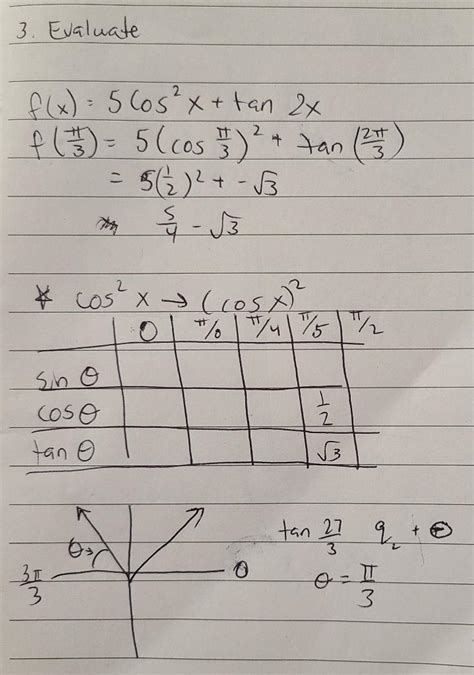 3. Evaluate
f(x) = 5 cos² x + tan 2x
f(π/3) = 5(cos π/3)² + tan(2π/3)
= 5(1/2)² + -√3
5/4 - √3
* cos² x → (cos x)²
0 π/6 π/4 π/5 π/2
sin θ
cos θ 1/2
tan θ √3
θ
3π/3 0
tan 27/3 q₂ +
θ = π/3